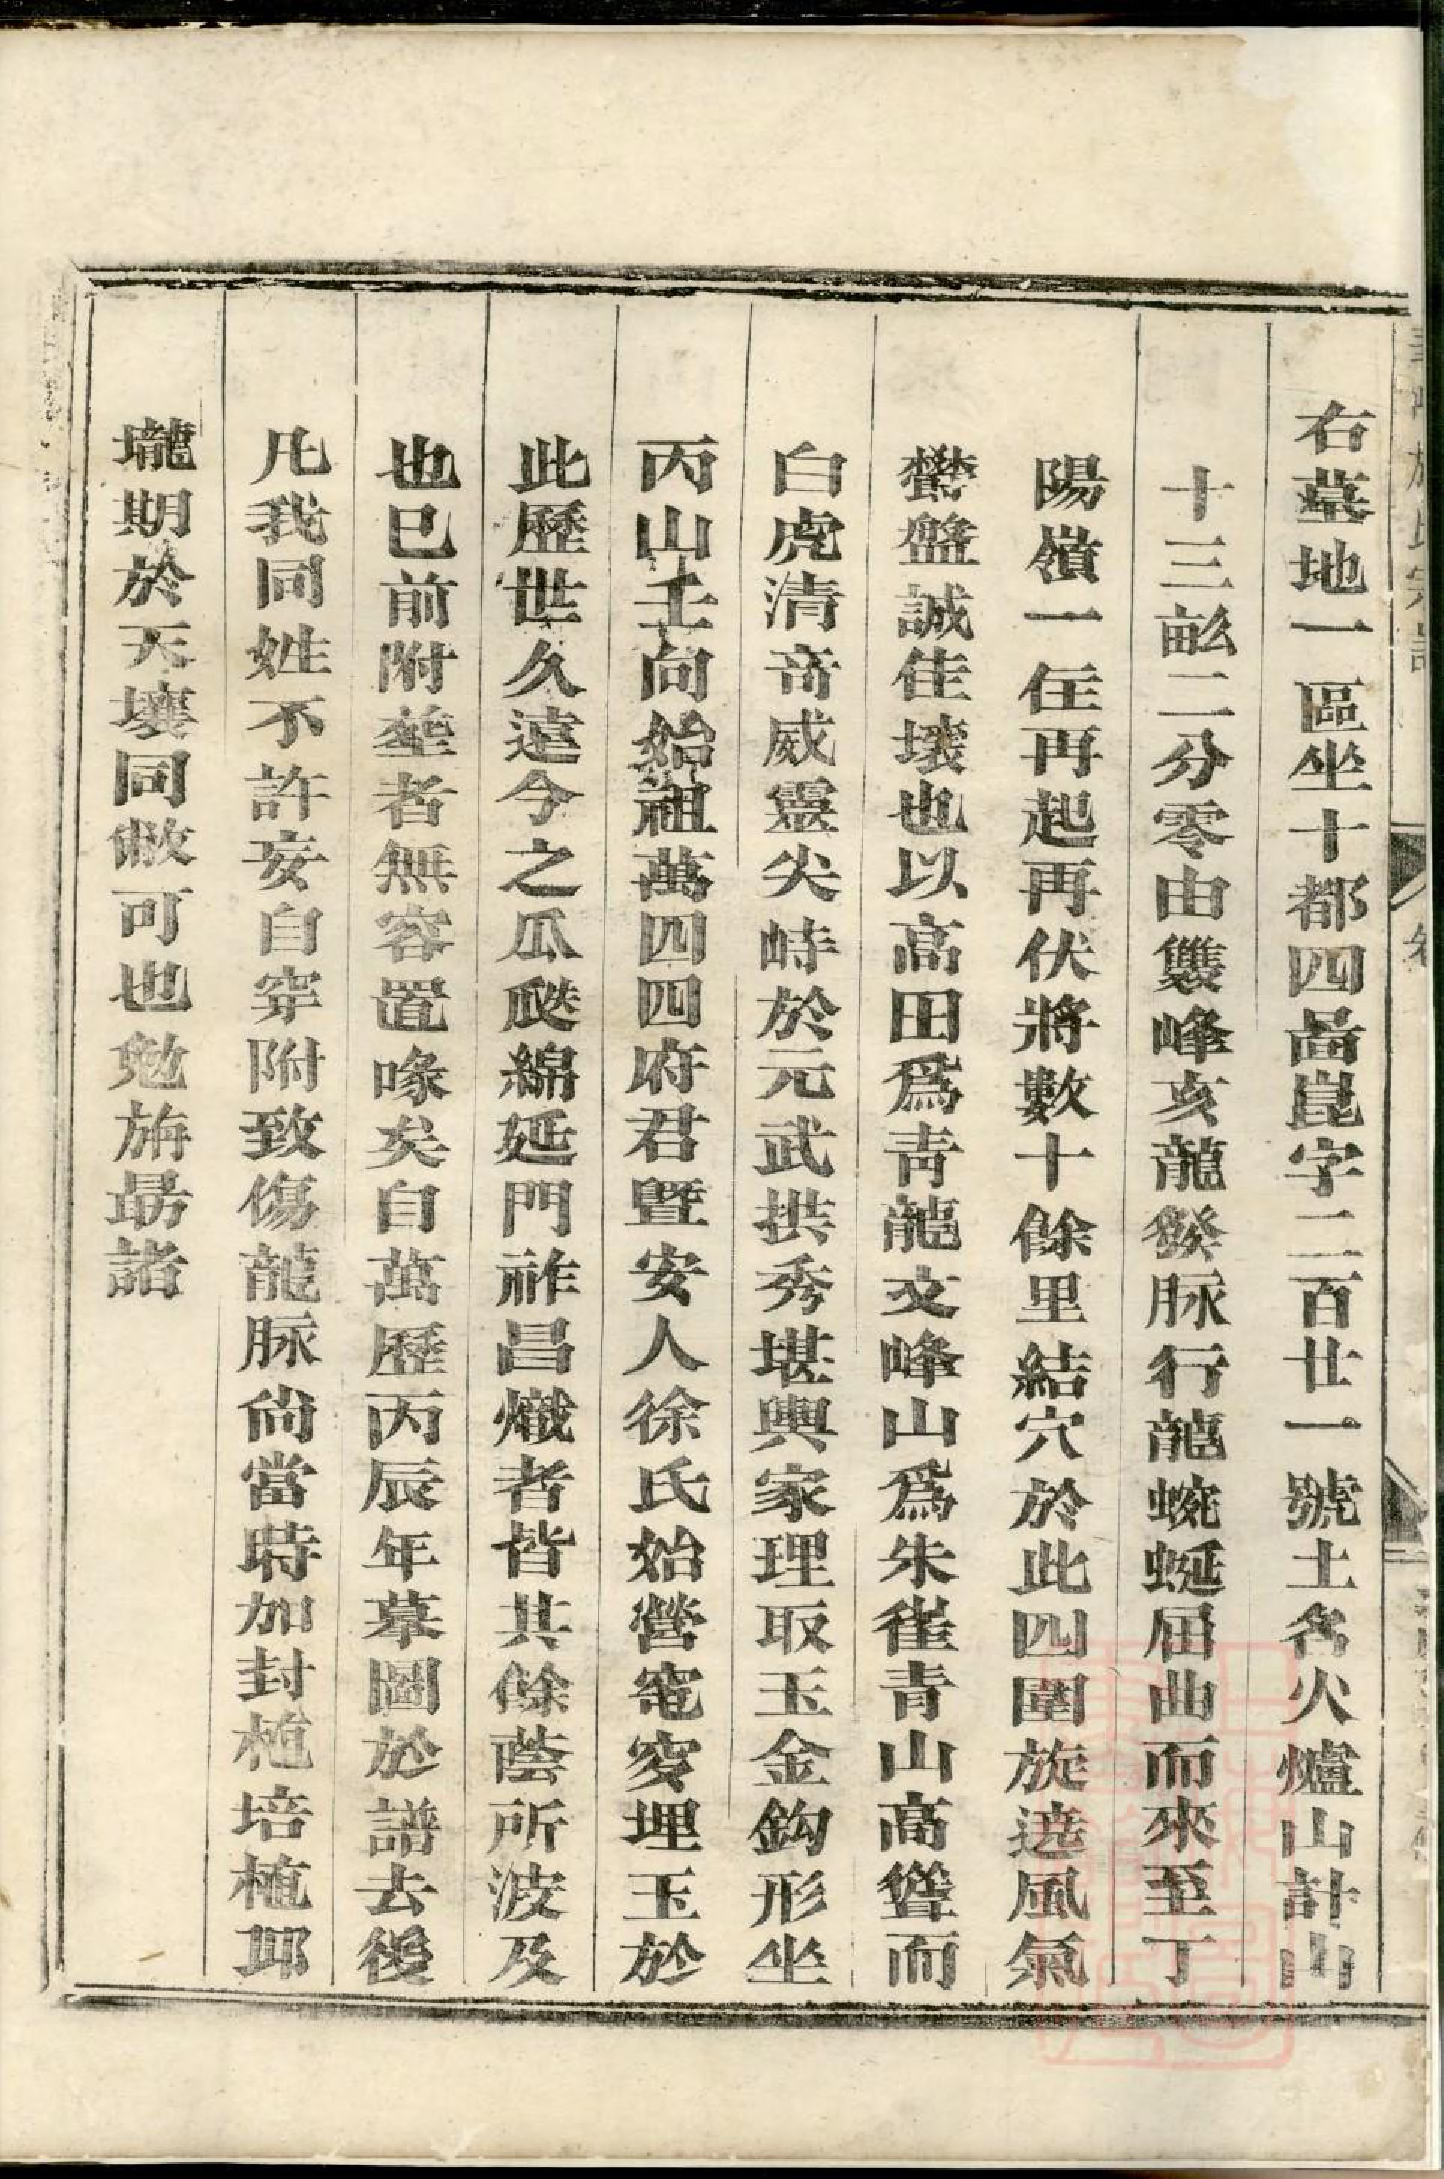 右墓地一區坐十都四啚崑字二百廿一號土名火爐山計山
十三畝二分零由雙峰亥龍發脉行龍蜿蜒屈曲而來至丁
陽嶺一任再起再伏將數十餘里結穴於此四圍旋遶風氣
欝盤誠佳壤也以高田爲青龍文峰山爲朱雀青山高聳而
白虎清奇威靈尖峙於元武拱秀堪輿家理取玉金鈎形坐
丙山壬向始祖萬四四府君暨安人徐氏始營窀穸埋玉於
此歷世久遠今之瓜瓞綿延門祚昌熾者皆其餘蔭所波及
也已前附塟者無容置喙矣自萬歷丙辰年墓圖於譜去後
凡我同姓不許妄自穿附致傷龍脉尚當時加封植培植邱
壠期於天壤同敝可也勉旃勗諸